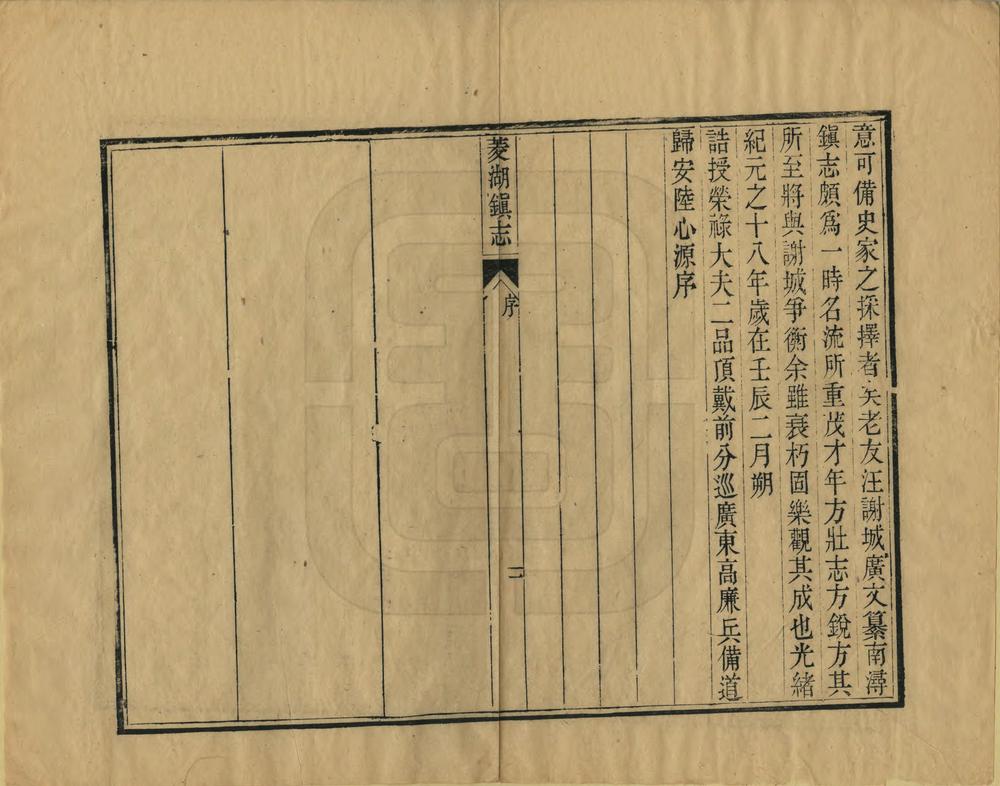 意可備史家之採擇者矣老友汪謝城廣文纂南潯
鎭志頗爲一時名流所重茂才年方壯志方銳方其
所至將與謝城爭衡余雖衰朽固樂觀其成也光緒
紀元之十八年歲在壬辰二月朔
誥授榮祿大夫二品頂戴前分巡廣東高廉兵備道
歸安陸心源序
菱湖鎭志
序
二